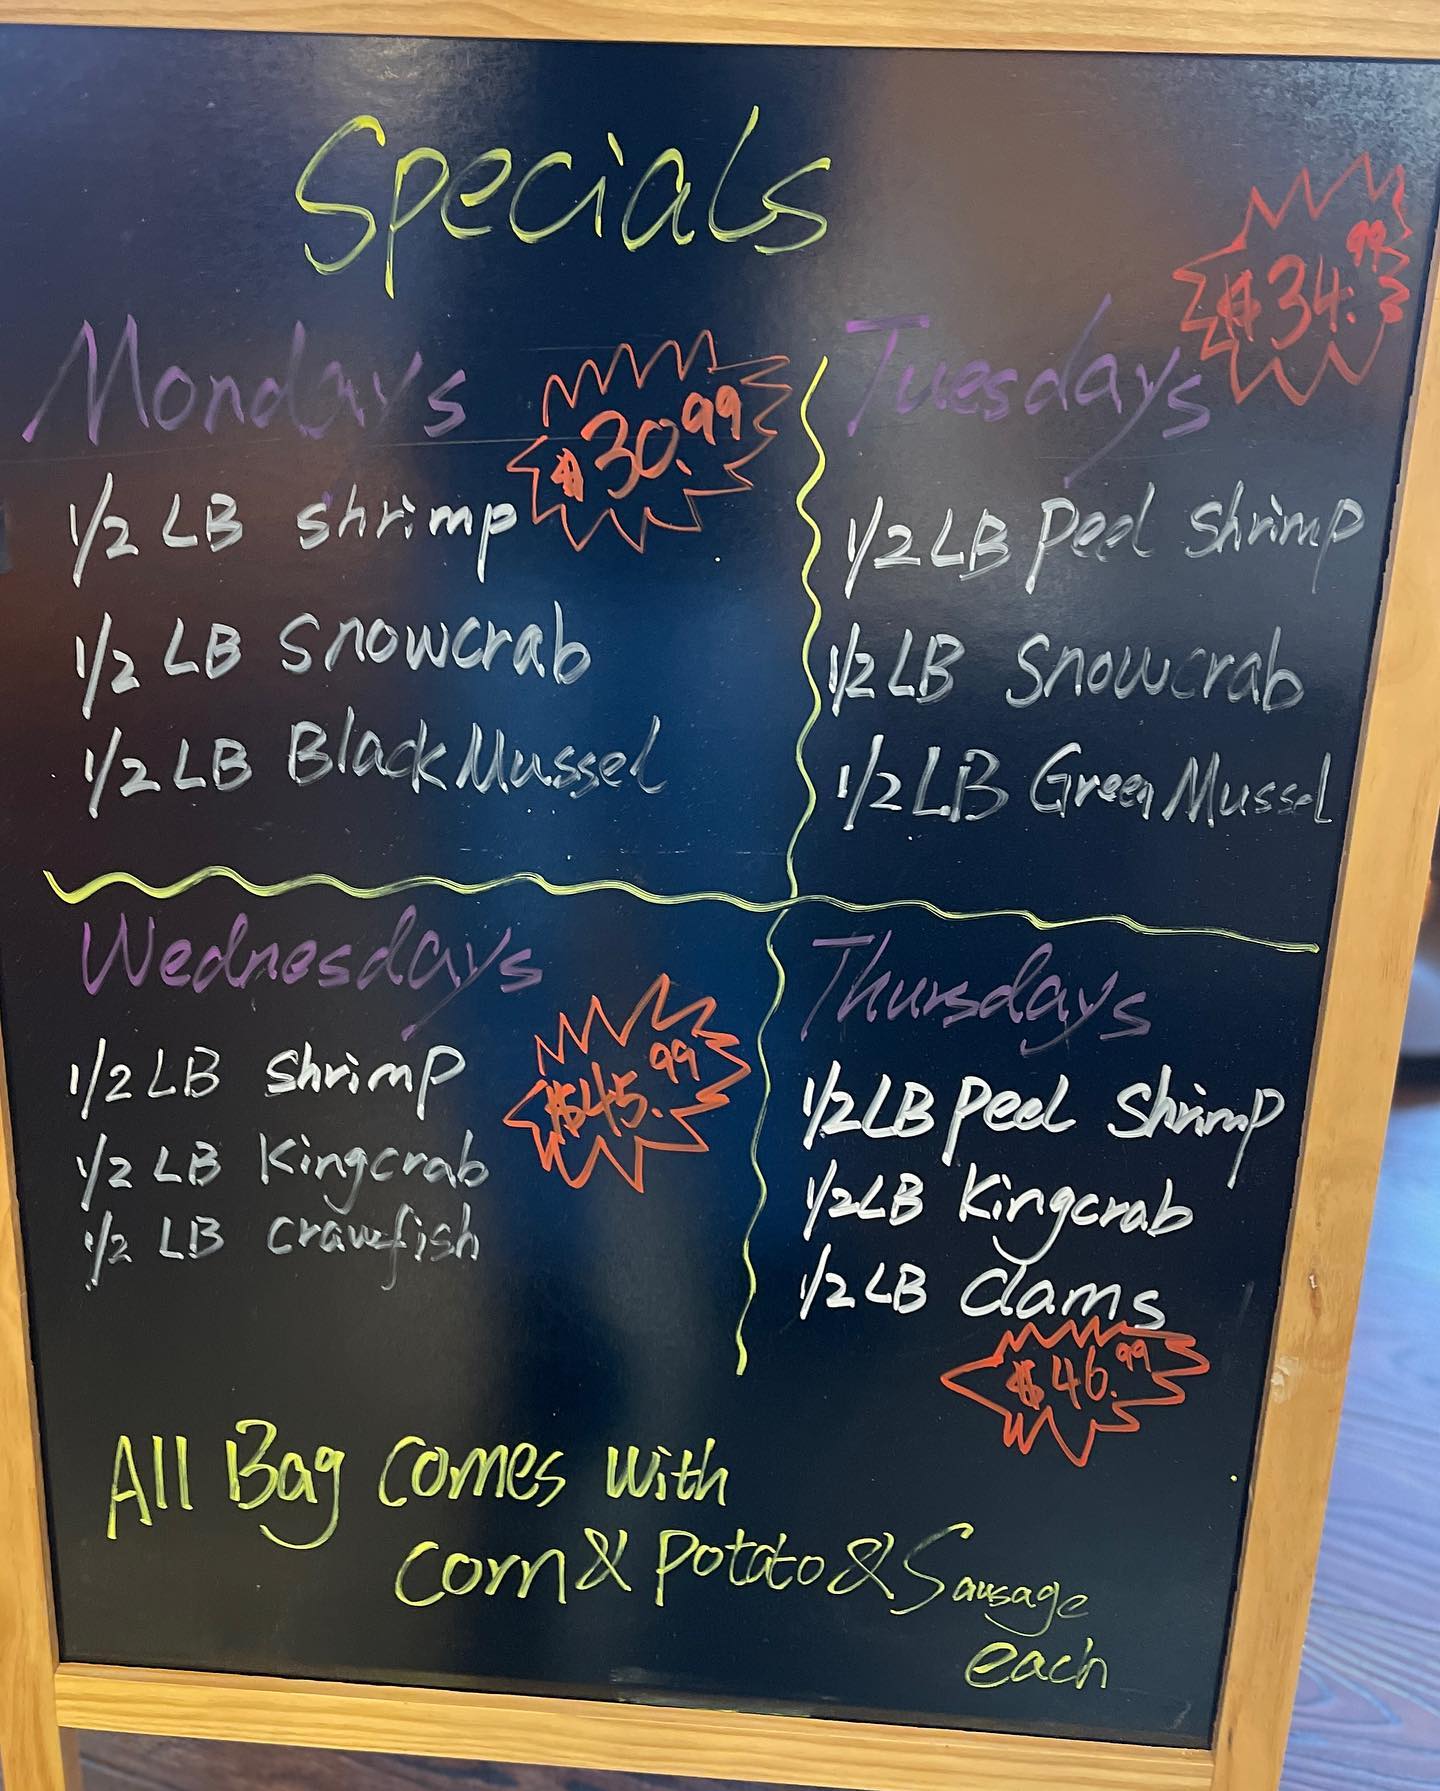 Specials
Mondays
$30.99
1/2 LB Shrimp
1/2 LB Snowcrab
1/2 LB Black Mussel
Tuesdays
$34.99
1/2 LB Peel Shrimp
1/2 LB Snowcrab
1/2 LB Green Mussel
Wednesdays
$45.99
1/2 LB Shrimp
1/2 LB Kingcrab
1/2 LB Crawfish
Thursdays
1/2 LB Peel Shrimp
1/2 LB Kingcrab
1/2 LB Clams
$46.99
All Bag Comes With
Corn & Potato & Sausage
each